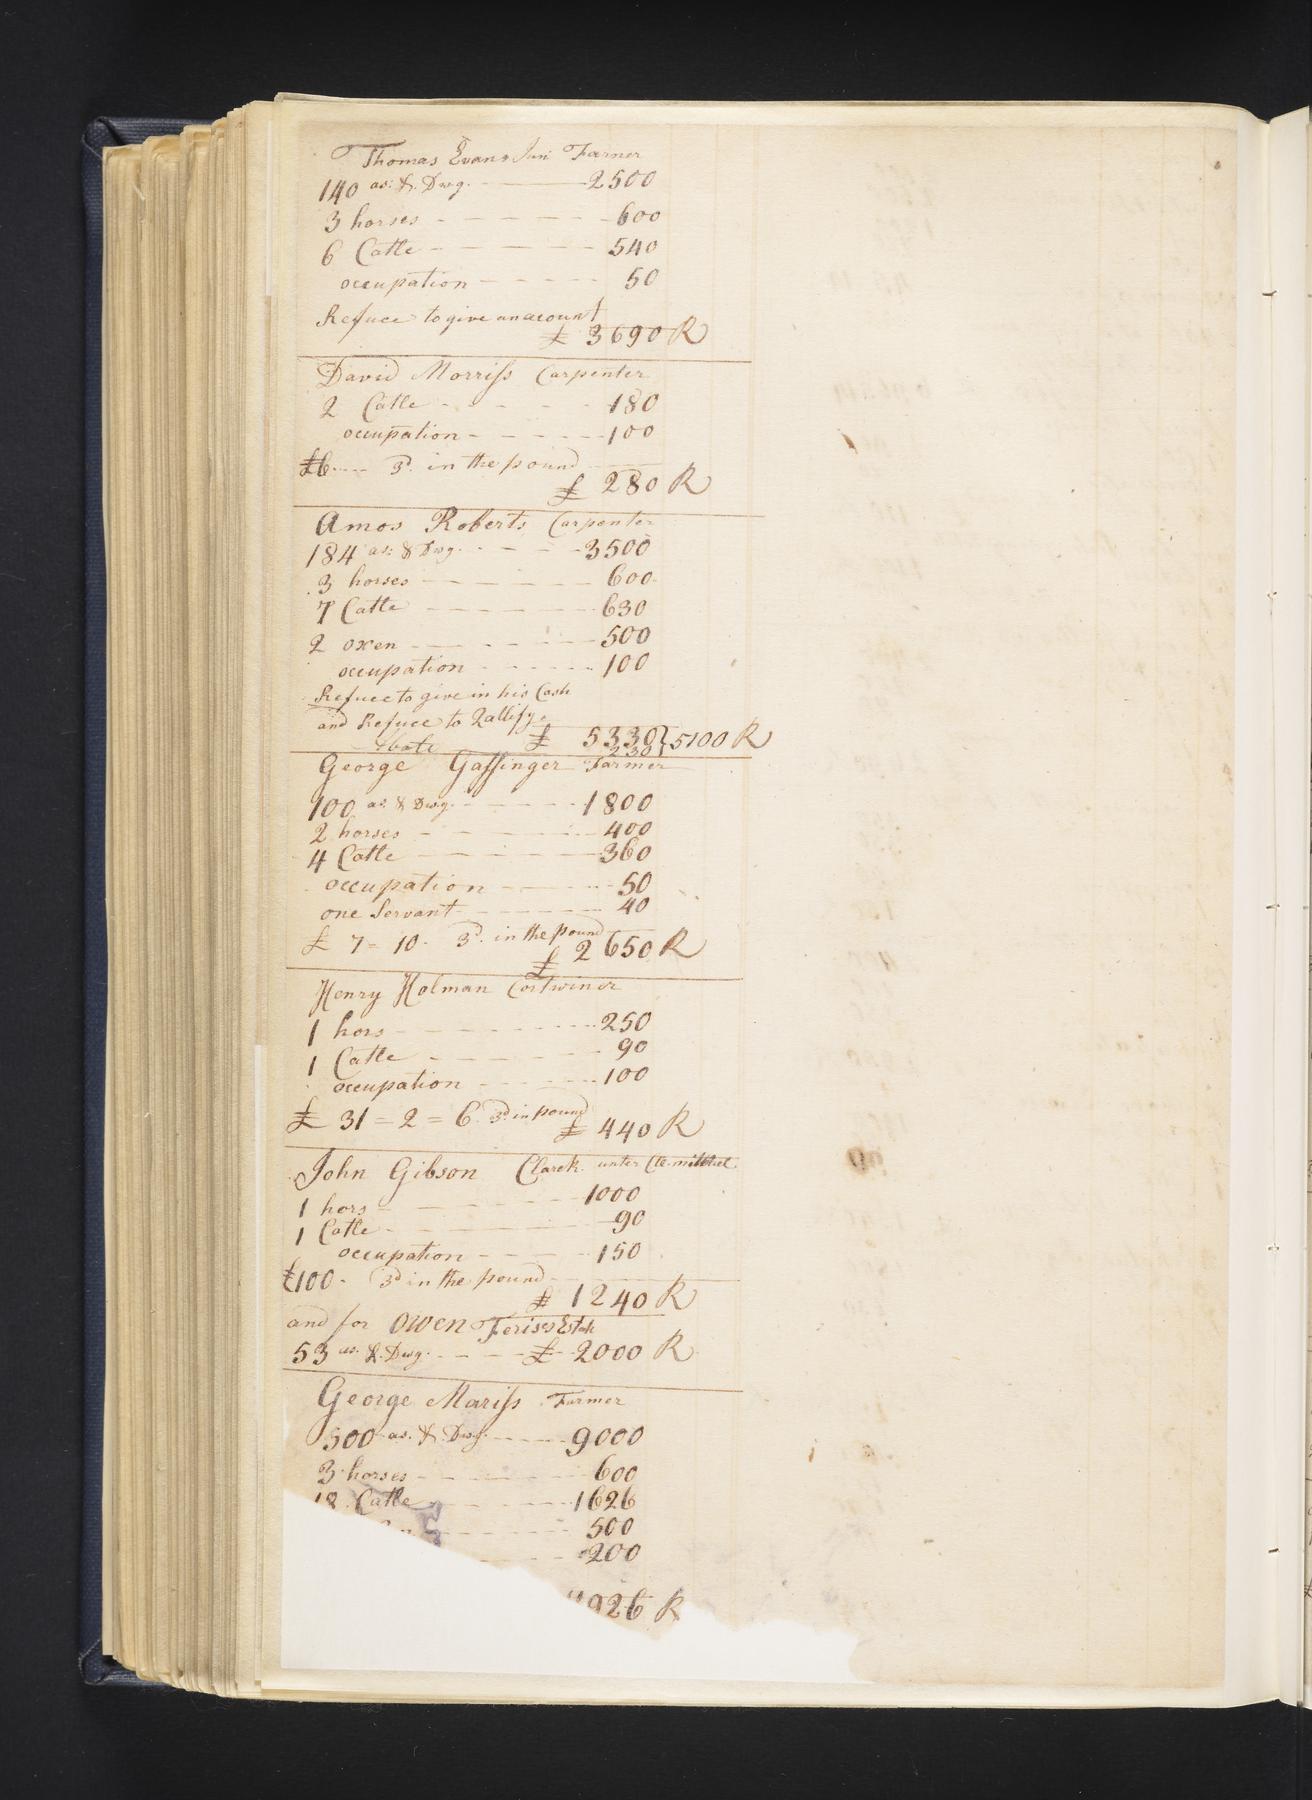 Thomas Evans Juni Farmer
140 as: & Dwg. 2500
3 horses 600
6 Catle 540
occupation 50
Refuce to give an acount
£ 3690 R
David Morriss Carpenter
2 Catle 180
occupation 100
£6 3d. in the pound
£ 280 R
Amos Roberts Carpenter
184 as: & Dwg. 3500
3 horses 600
7 Catle 630
2 oxen 500
occupation 100
Refuce to give in his Cash
and Refuce to Qallify
Abate £ 5330 } 5100 R
230
George Gassinger Farmer
100 as. & Dwg. 1800
2 horses 400
4 Catle 360
occupation 50
one Servant 40
£ 7 = 10 - 3d. in the pound
£ 2650 R
Henry Holman Cortwiner
1 hors 250
1 Catle 90
occupation 100
£ 31 = 2 = 6 3d in pound
£ 440 R
John Gibson Clarck unter
1 hors 1000
1 Catle 90
occupation 150
£100 - 3d in the pound
£ 1240 R
and for Owen
53 as. & Dwg. £ 2000 R
George Mariss Farmer
500 as. & Dwg. 9000
3 horses 600
18 Catle 1626
500
200
926 R